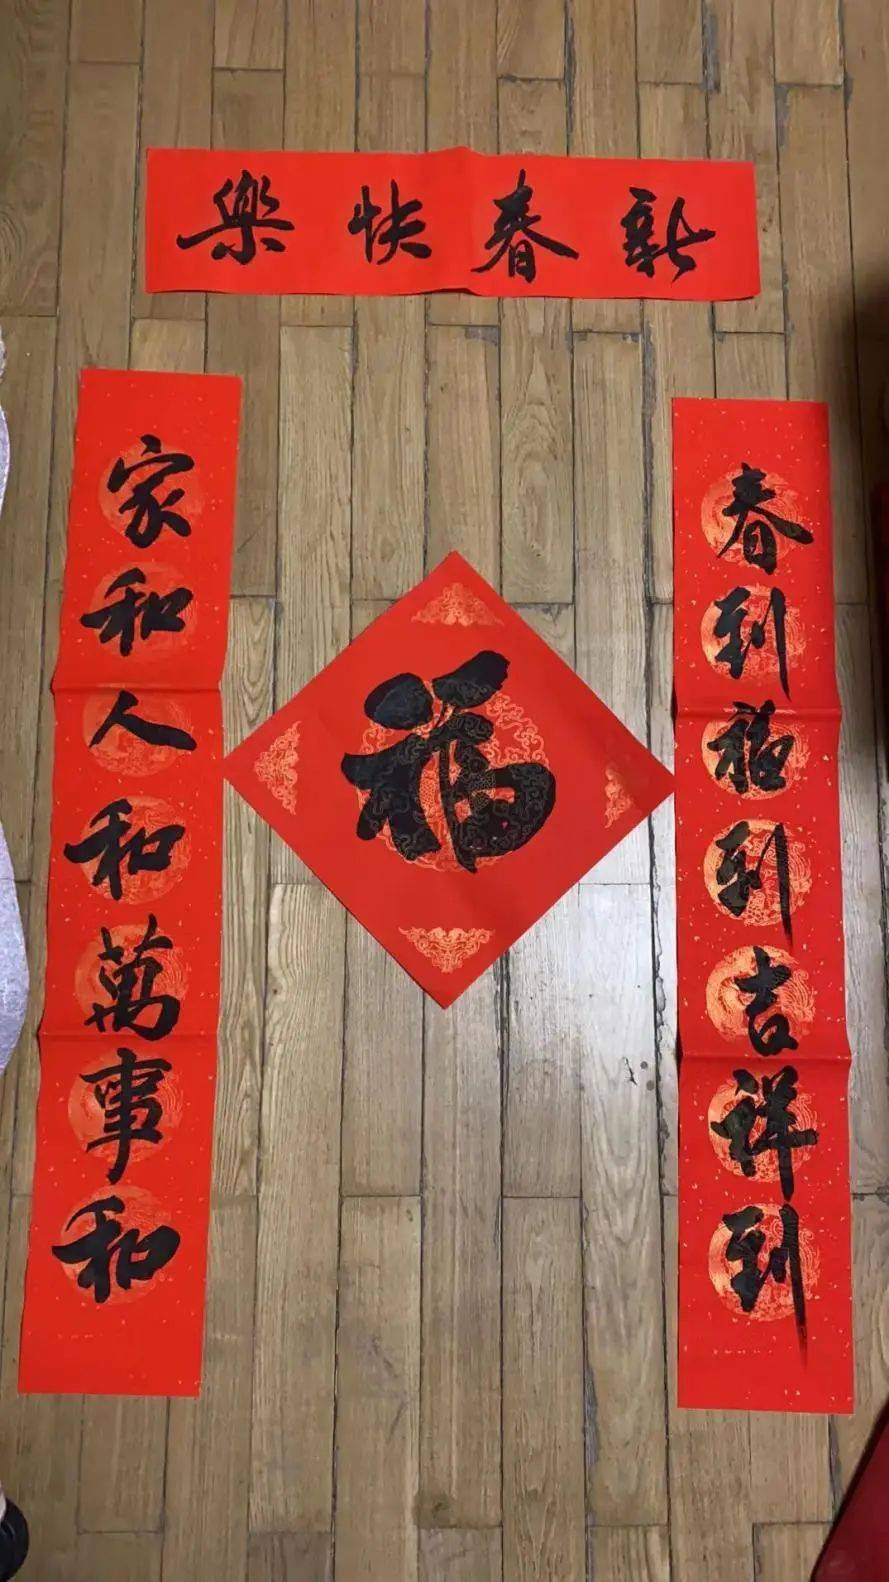 新春快樂
春到福到吉祥到
家和人和萬事和
福